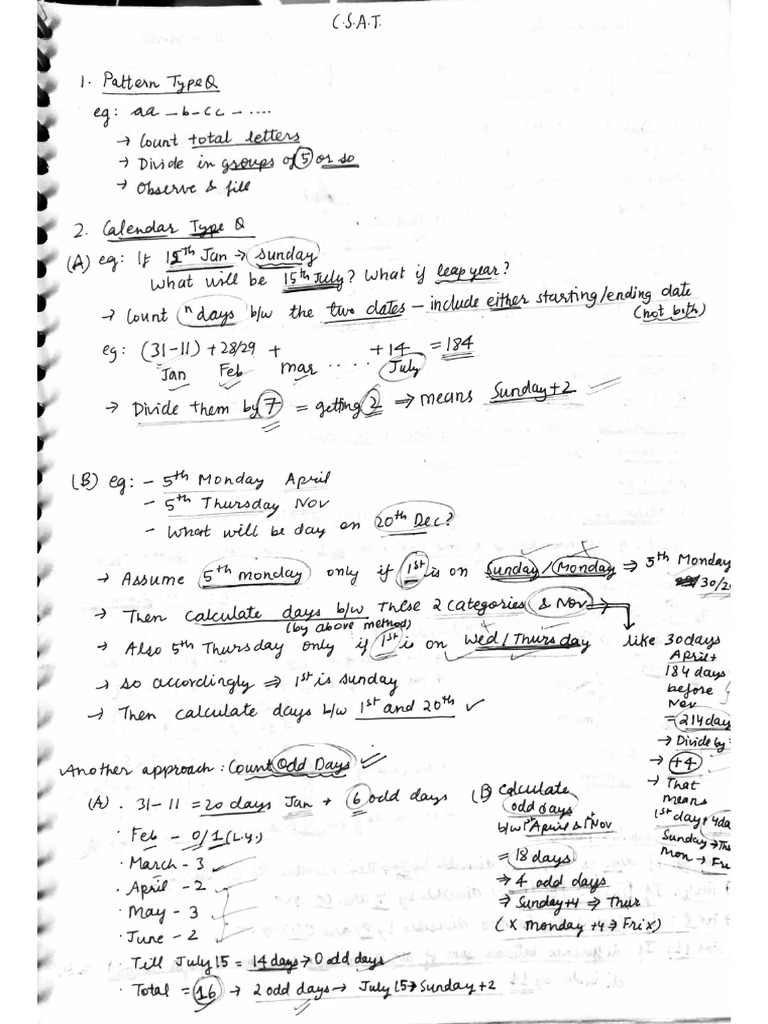 C.S.A.T.
1. Pattern Type Q
eg: aa _ b _ cc _ ....
→ Count total letters
→ Divide in groups of 5 or so
→ Observe & fill
2. Calendar Type Q
(A) eg: If 11th Jan → Sunday
What will be 15th July? What if leap year?
→ Count n days b/w the two dates – include either starting/ending date
(not both)
eg: (31-11) + 28/29 + +14 = 184
Jan Feb mar .... July
→ Divide them by 7 = getting 2 ⇒ means Sunday+2
(B) eg: - 5th Monday April
- 5th Thursday Nov
- What will be day on 20th Dec?
→ Assume 5th monday only if 1st is on Sunday/Monday ⇒ 5th Monday
30/29
→ Then calculate days b/w These 2 categories & Nov
(by above method)
→ Also 5th Thursday only if 1st is on Wed/Thursday
→ so accordingly ⇒ 1st is sunday
→ Then calculate days b/w 1st and 20th ✓
like 30days
April+
184 days
before
Nov
= 214 day
→ Divide by
→ +4
→ That
means
1st day + 4da
Sunday → Thu
Mon → Fri
Another approach: Count Odd Days ✓
(A) . 31-11 = 20 days Jan → 6 odd days
· Feb - 0/1 (L.y.)
· March - 3
· April - 2
· May - 3
· June - 2
· Till July 15 = 14 days → 0 odd days
· Total = 16 → 2 odd days → July 15 → Sunday +2
(B) Calculate
odd days
b/w 1st April & 1st Nov
= 18 days
→ 4 odd days
⇒ Sunday+4 → Thur
(X monday +4 → Fri X)